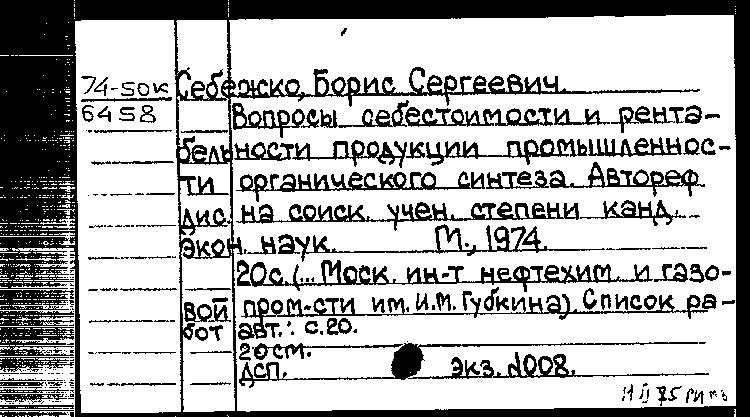 74-50к Себежко, Борис Сергеевич.
6458 Вопросы себестоимости и рента-
бельности продукции промышленнос-
ти органического синтеза. Автореф.
дис. на соиск. учен. степени канд.
экон. наук. М., 1974.
20с. (... Моск. ин-т нефтехим. и газо-
вой пром-сти им. И.М. Губкина). Список ра-
бот авт.: с.20.
20см.
ДСП. экз. №008.